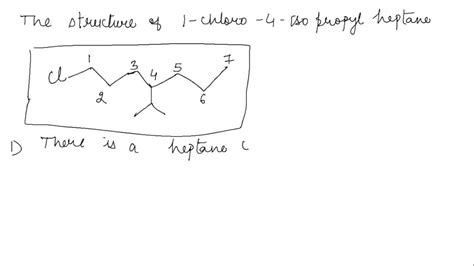 The structure of 1-chloro-4-iso propyl heptane
Cl 1 2 3 4 5 6 7
1) There is a heptane c